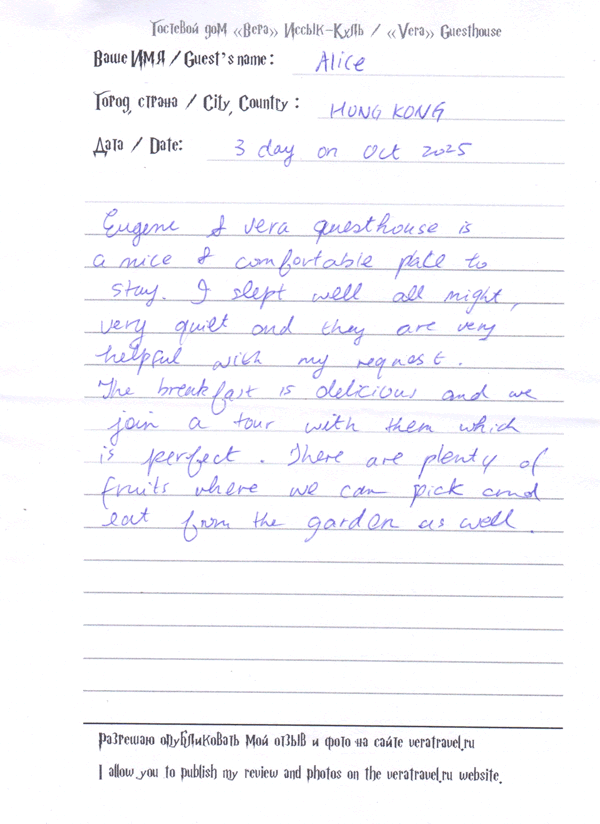 Гостевой дом «Вера» Иссык-Куль / «Vera» Guesthouse
Ваше ИМЯ / Guest's name: Alice
Город, страна / City, Country : HUNG KONG
Дата / Date: 3 day on Oct 2025
Eugene & vera guesthouse is
a nice & comfortable pale to
stay. I slept well all night,
very quilt and they are very
helpful with my request.
The breakfast is delicious and we
join a tour with them which
is perfect. There are plenty of
fruits where we can pick and
eat from the garden as well.
Разрешаю опубликовать мой отзыв и фото на сайте veratravel.ru
I allow you to publish my review and photos on the veratravel.ru website.